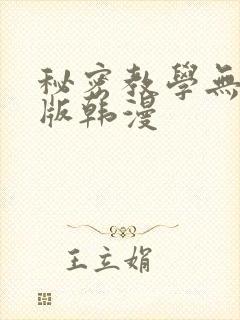 秘密教學無
版韩漫
王立娟